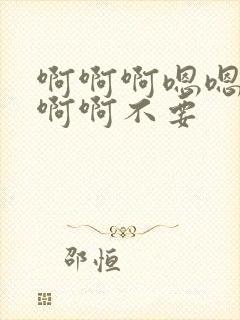 啊啊啊嗯嗯
啊啊不要
邵恒